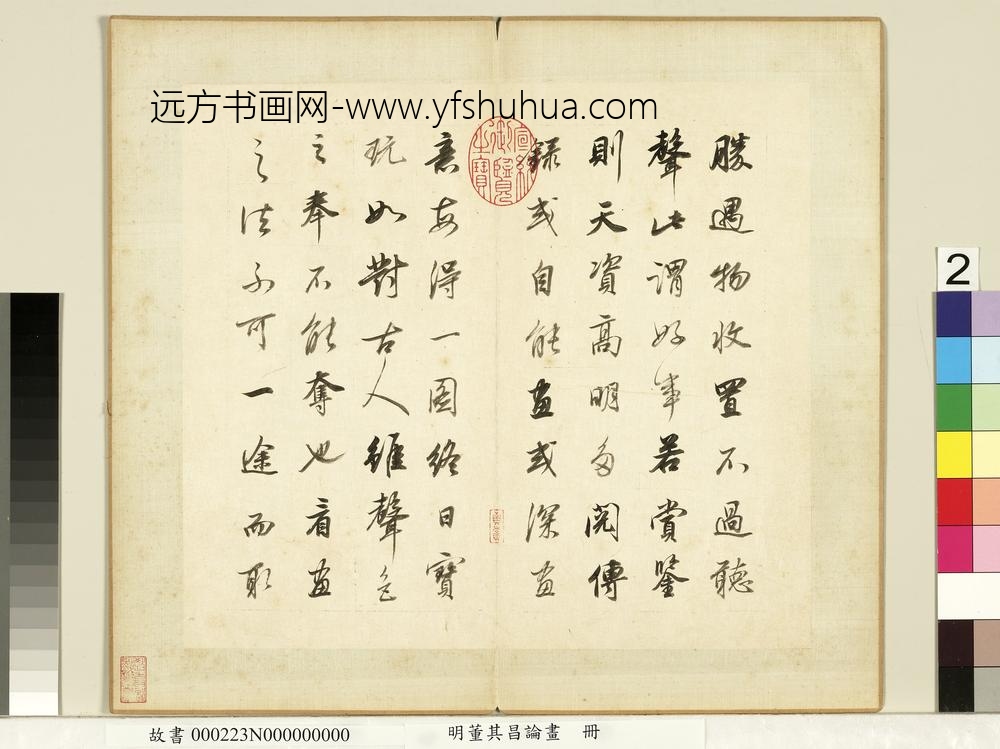 远方书画网-www.yfshuhua.com
勝遇物收置不過聽
聲此謂好事若賞鑒
則天資高明多閱傳
錄或自能畫或深畫
意每得一圖終日寶
玩如對古人雖聲色
之奉不能奪也看畫
之法不可一途而取
宣統御覽之寶
2
故書 000223N000000000
明董其昌論畫 冊